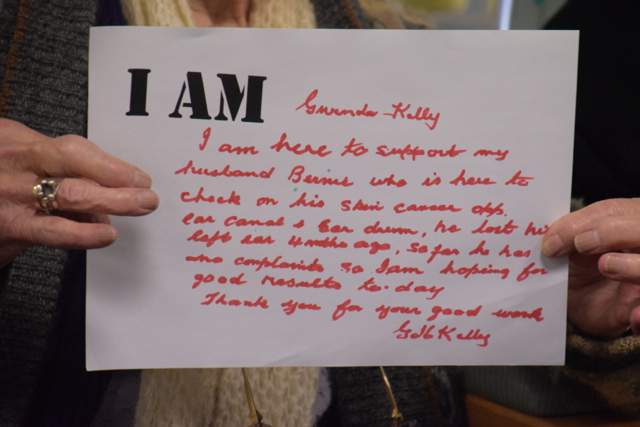 I AM Gwenda Kelly
I am here to support my
husband Bernie who is here to
check on his skin cancer opp.
ear canal & Ear drum, he lost his
left ear 4 mths ago, so far he has
no complaints so I am hoping for
good results to-day
Thank you for your good work
Kelly